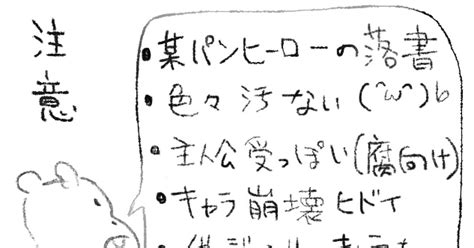 注意
・某パンヒーローの落書
・色々汚ない(^ω^)b
・主人公受っぽい(腐向け)
・キャラ崩壊ヒドイ